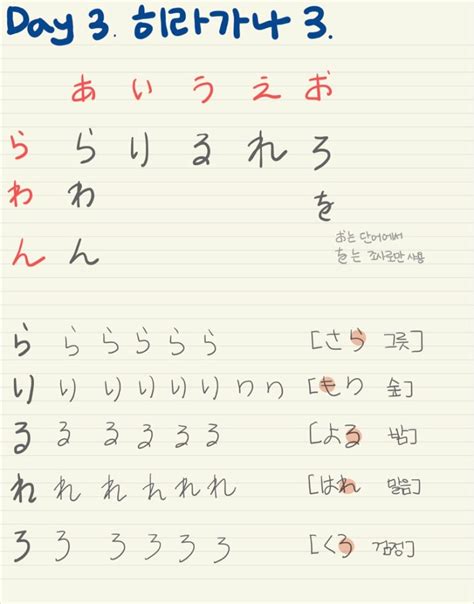 Day 3. 히라가나 3.
あ い う え お
ら ら り る れ ろ
わ わ を
お는 단어에서
を는 조사로만 사용
ん ん
ら ら ら ら ら ら [さら 그릇]
り り り り り り り り [もり 숲]
る る る る る る [よる 밤]
れ れ れ れ れ れ [はれ 맑음]
ろ ろ ろ ろ ろ ろ [くろ 검정]